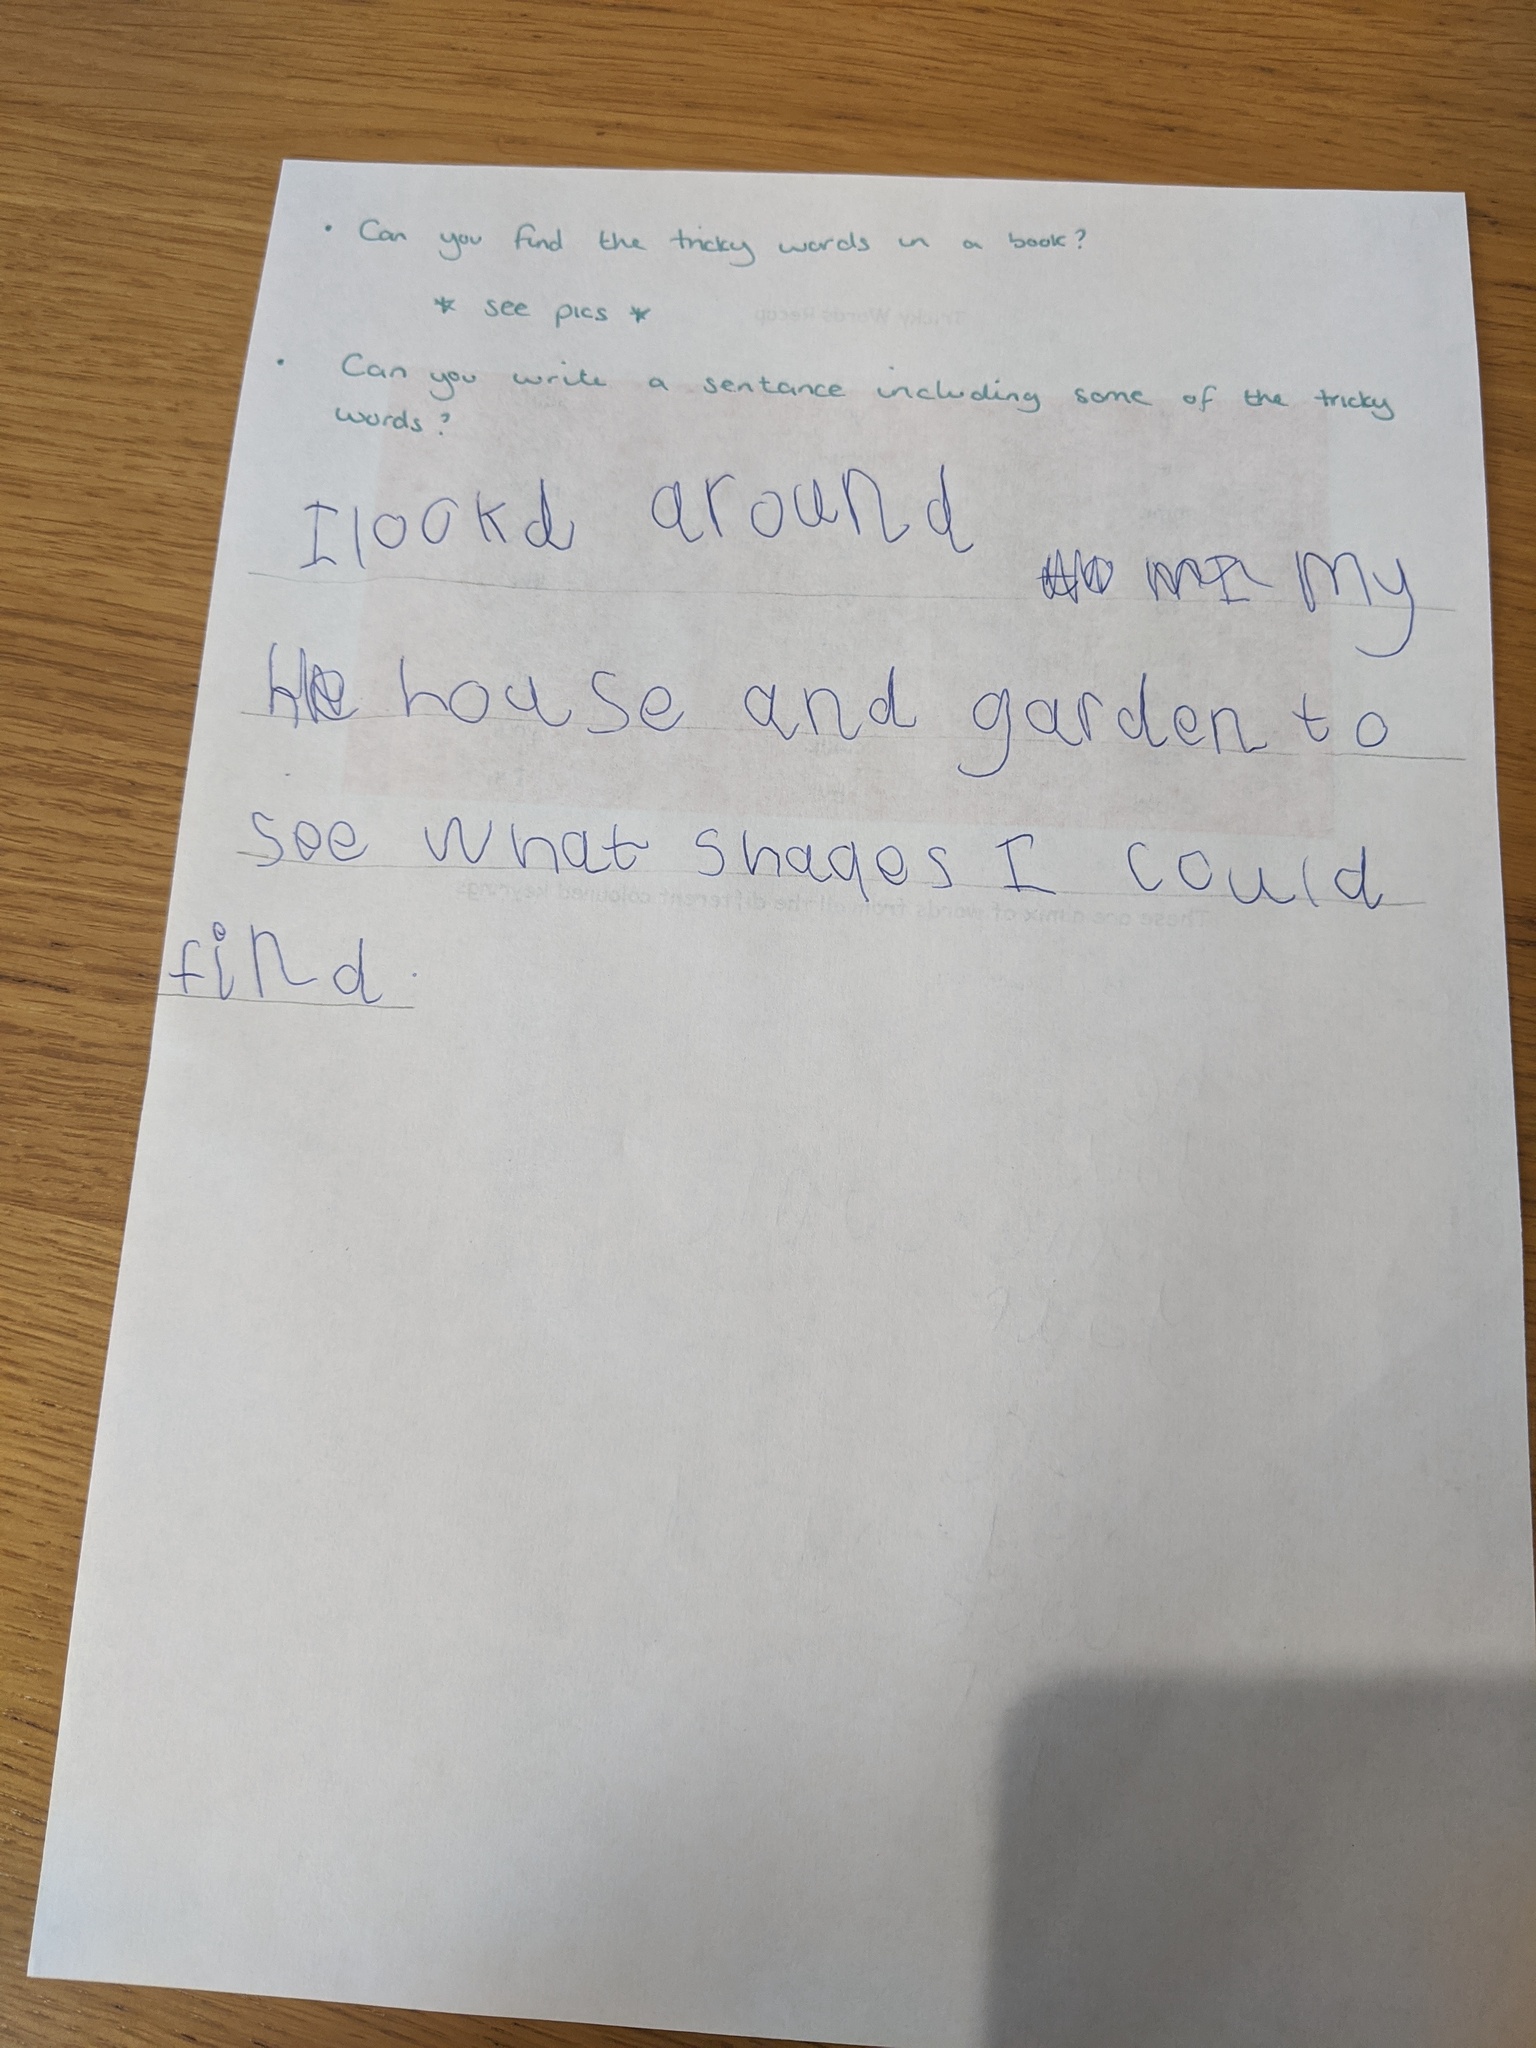 • Can you find the tricky words in a book?
* see pics *
• Can you write a sentance including some of the tricky
words?
I lookd around my
house and garden to
see what shapes I could
find.